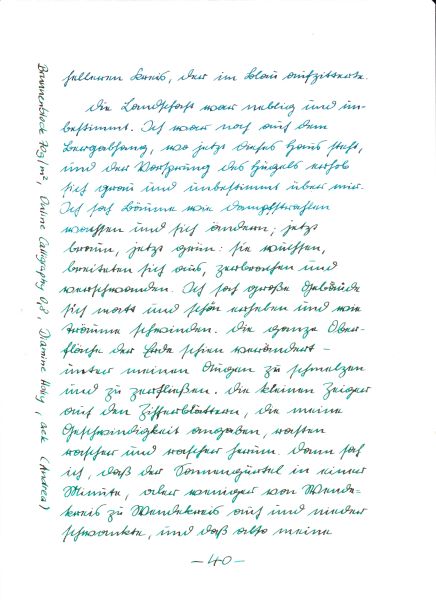 helleren Kreis, der im Blau aufzitterte.
Die Landschaft war neblig und un-
bestimmt. Ich war noch auf dem
Bergabhang, wo jetzt dieses Haus steht,
und der Vorsprung des Hügels erhob
sich grau und unbestimmt über mir.
Ich sah Bäume wie Dampfstrahlen
wachsen und sich ändern; jetzt
braun, jetzt grün: sie wuchsen,
breiteten sich aus, zerbrachen und
verschwanden. Ich sah große Gebäude
sich matt und schön erheben und wie
Träume schwinden. Die ganze Ober-
fläche der Erde schien verändert -
unter meinen Augen zu schmelzen
und zu zerfließen. Die kleinen Zeiger
auf den Zifferblättern, die meine
Geschwindigkeit angaben, rasten
rascher und rascher herum. Dann sah
ich, daß der Sonnengürtel in einer
Minute, oder weniger von Wende-
kreis zu Wendekreis auf und nieder
schwankte, und daß also meine
- 40 -
Brunnen 70g/m², Online Calligraphy 0,8, Diamine, (Andrea)